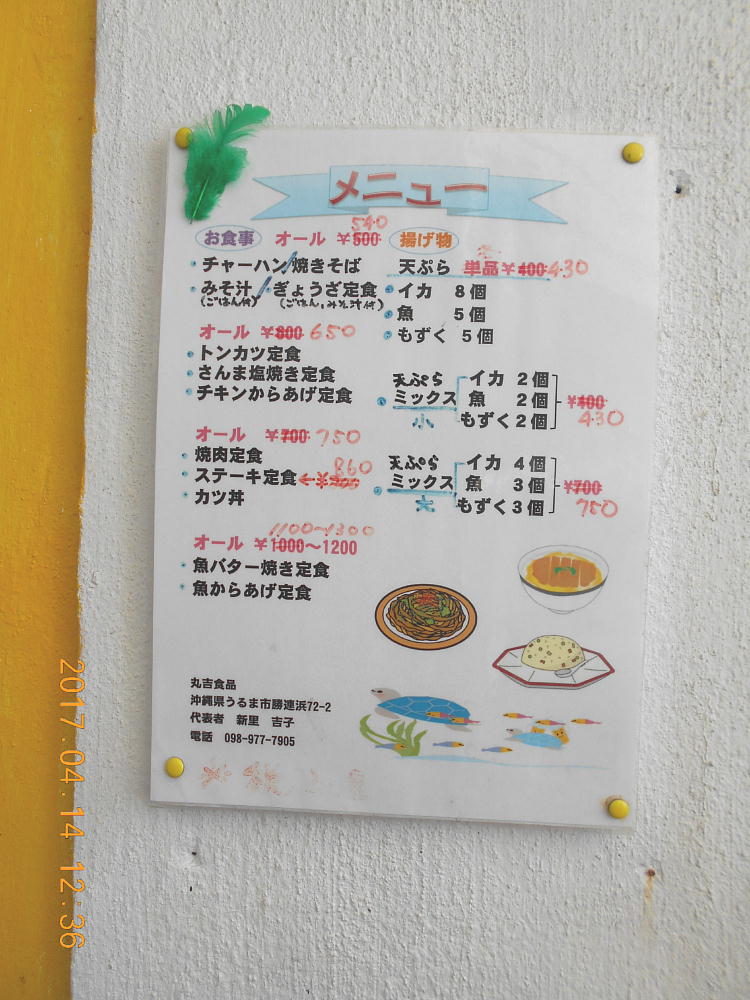 メニュー
お食事 オール ¥500 540
チャーハン/焼きそば
みそ汁/・ぎょうざ定食
(ごはん付) (ごはん、みそ汁付)
オール ¥800 650
トンカツ定食
さんま塩焼き定食
チキンからあげ定食
オール ¥700 750
焼肉定食
ステーキ定食 860
カツ丼
1100〜1300
オール ¥1000〜1200
魚バター焼き定食
魚からあげ定食
揚げ物
天ぷら 単品¥400 430
イカ 8個
魚 5個
もずく 5個
天ぷら イカ 2個
ミックス 魚 2個 ¥400
小 もずく2個 430
天ぷら イカ 4個
ミックス 魚 3個 ¥700
大 もずく3個 750
丸吉食品
沖縄県うるま市勝連浜72-2
代表者 新里 吉子
電話 098-977-7905
2017.04.14 12:36